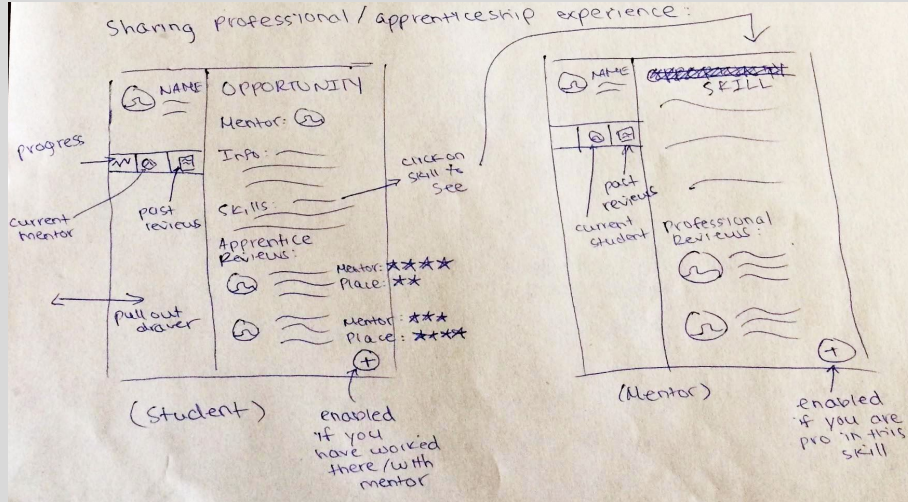 Sharing professional/apprenticeship experience:
NAME
OPPORTUNITY
Mentor:
Info:
Skills:
Apprentice
Reviews:
Mentor: ★★★★
Place: ★★
Mentor: ★★★
Place: ★★★★
+
progress
current
mentor
past
reviews
pull out
drawer
click on
skill to
see
(Student)
enabled
if you
have worked
there/with
mentor
NAME
SKILL
past
reviews
current
student
Professional
Reviews:
+
(Mentor)
enabled
if you are
pro in this
skill